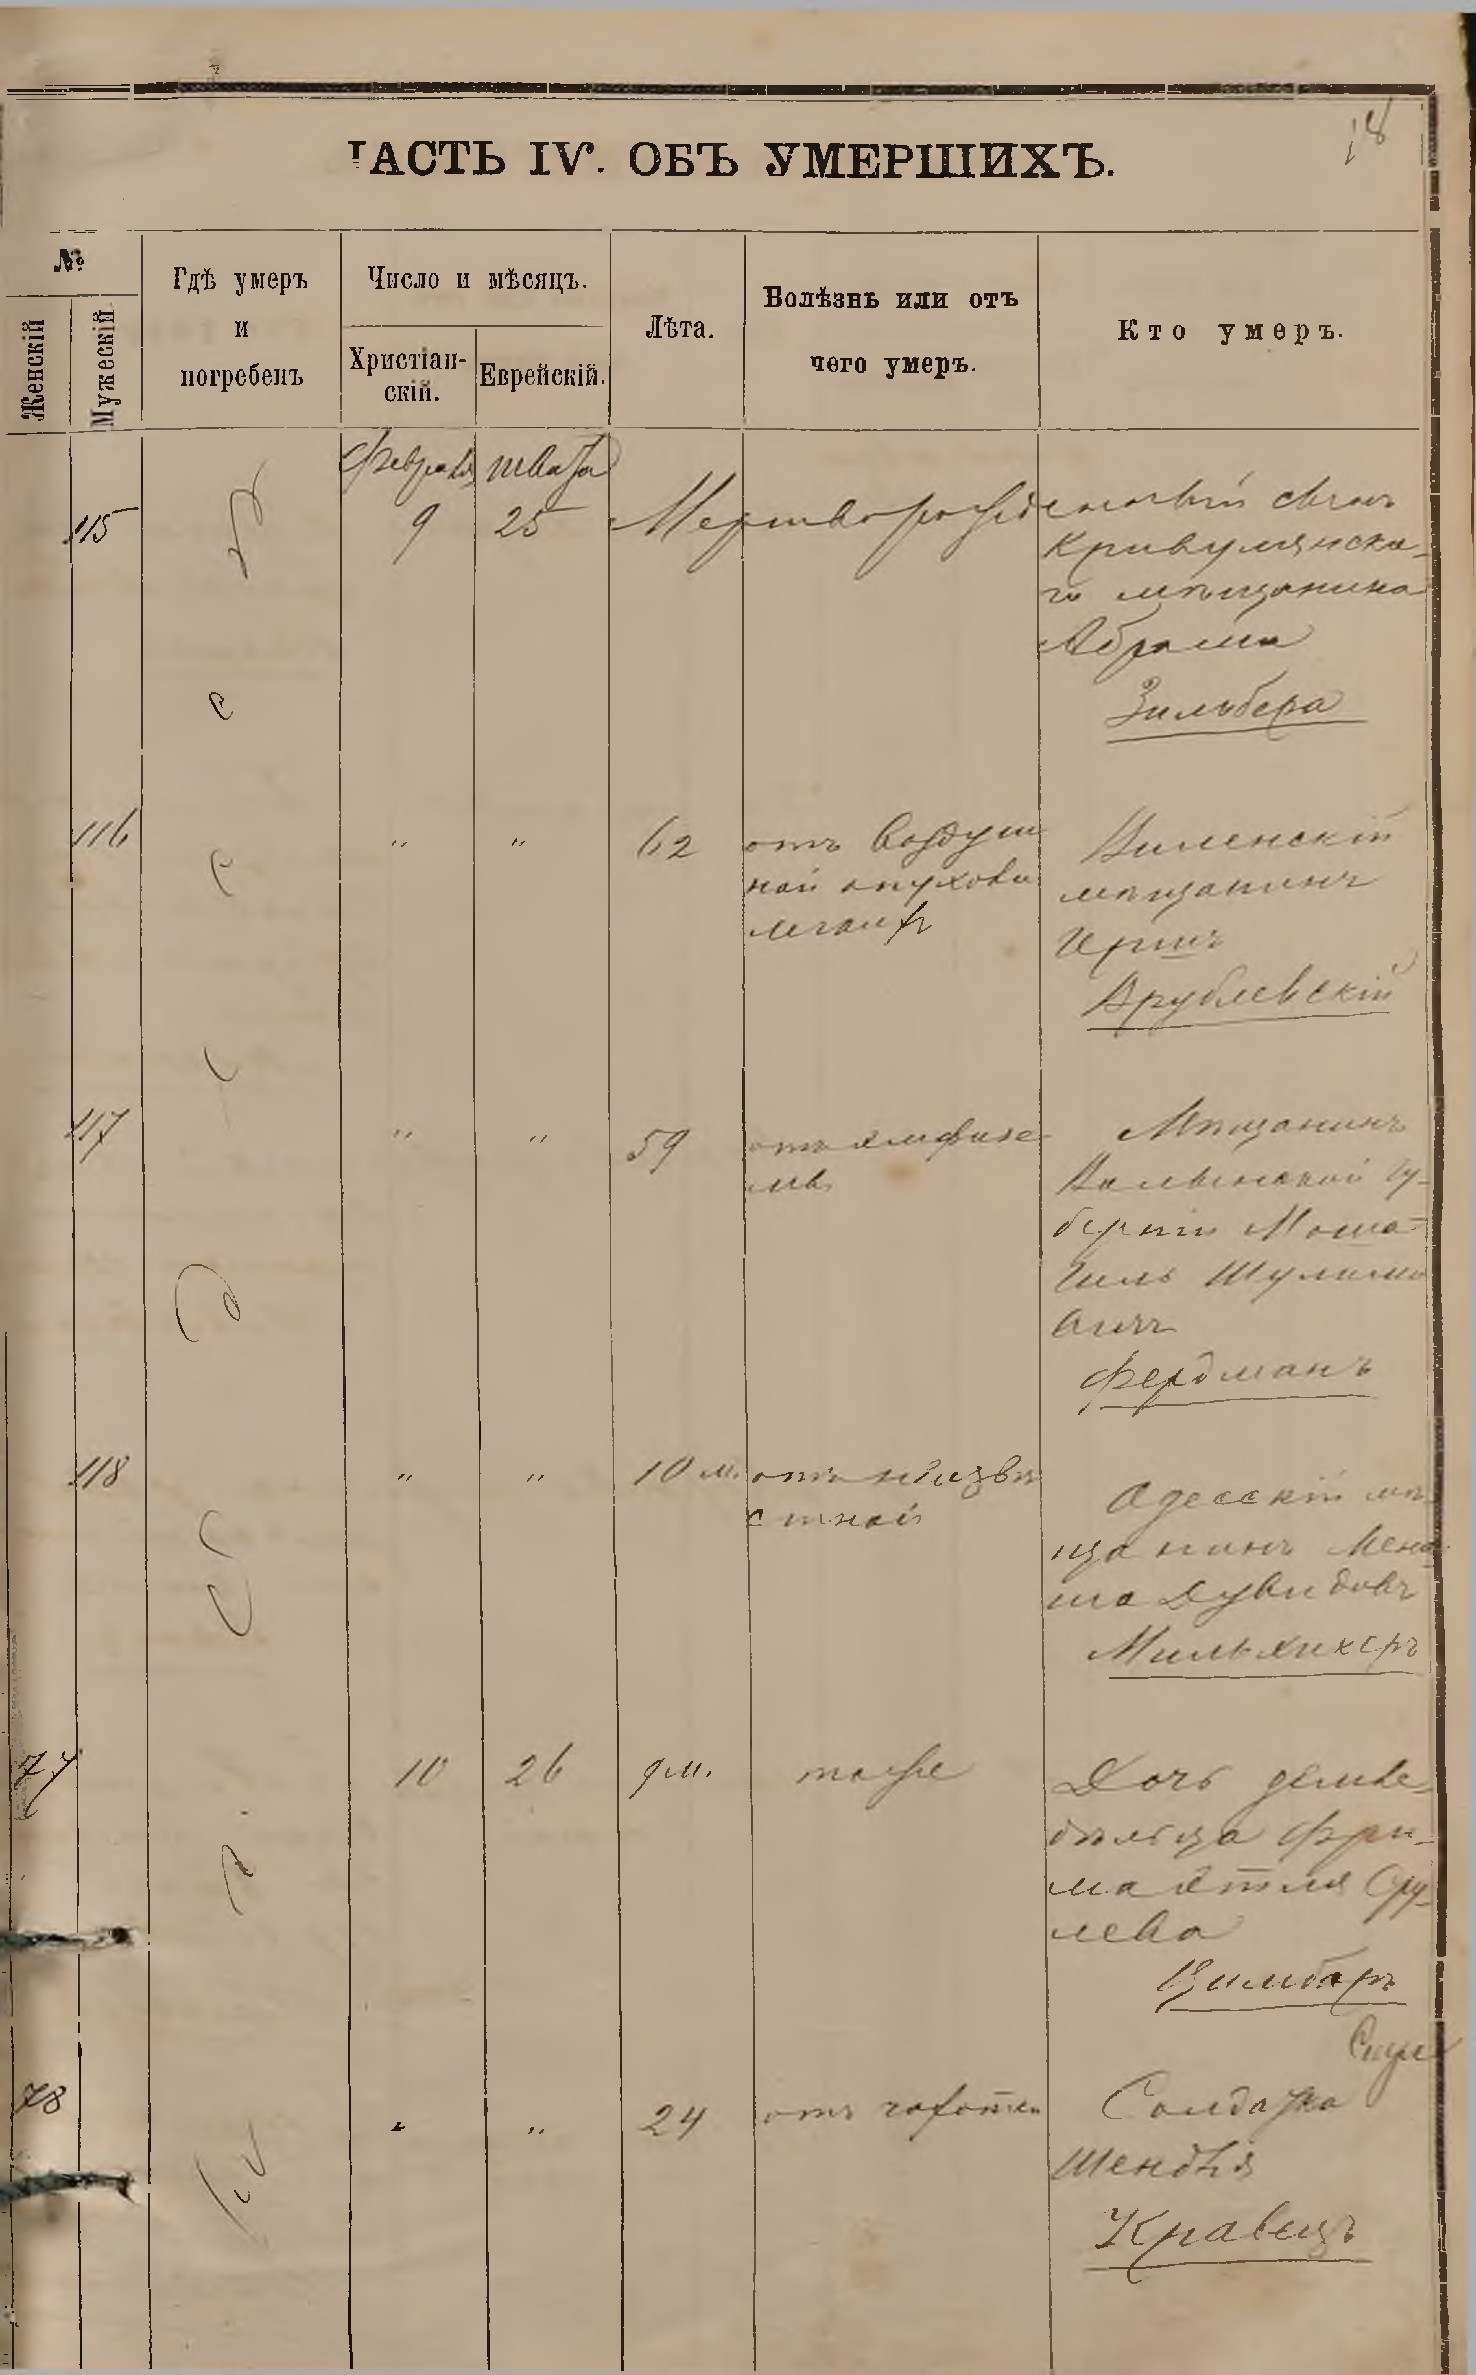 18
ЧАСТЬ IV. ОБЪ УМЕРШИХЪ.
№
Женскій
Мужескій
Гдѣ умеръ
и
погребенъ
Число и мѣсяцъ.
Христіан-
скій.
Еврейскій.
Лѣта.
Болѣзнь или отъ
чего умеръ.
Кто умеръ.
Февраля
Швата
115
9
25
Мертворожденный сынъ
Кривулянска-
го мѣщанина
Абрама
Зильбера
116
"
"
62
отъ воздуш
ной опухоли
легкихъ
Виленскій
мѣщанинъ
Иршъ
Врублевскій
117
"
"
59
отъ эмфизе
мы
Мѣщанинъ
Волынской гу-
берніи Мошко-
Гиль Шулимо
вичъ
Фердманъ
118
"
"
10 м.
отъ неизвѣ
стной
Одесскій мѣ
щанинъ Мена
ша Дувидовъ
Мильхикеръ
77
10
26
9 м.
тоже
Дочь землевла-
дѣльца Фри-
ма Этля Сру-
лева
Цимбаръ
78
"
"
24
отъ чахотки
Солдатка
Шендля
Кравецъ
О
д
е
с
с
а